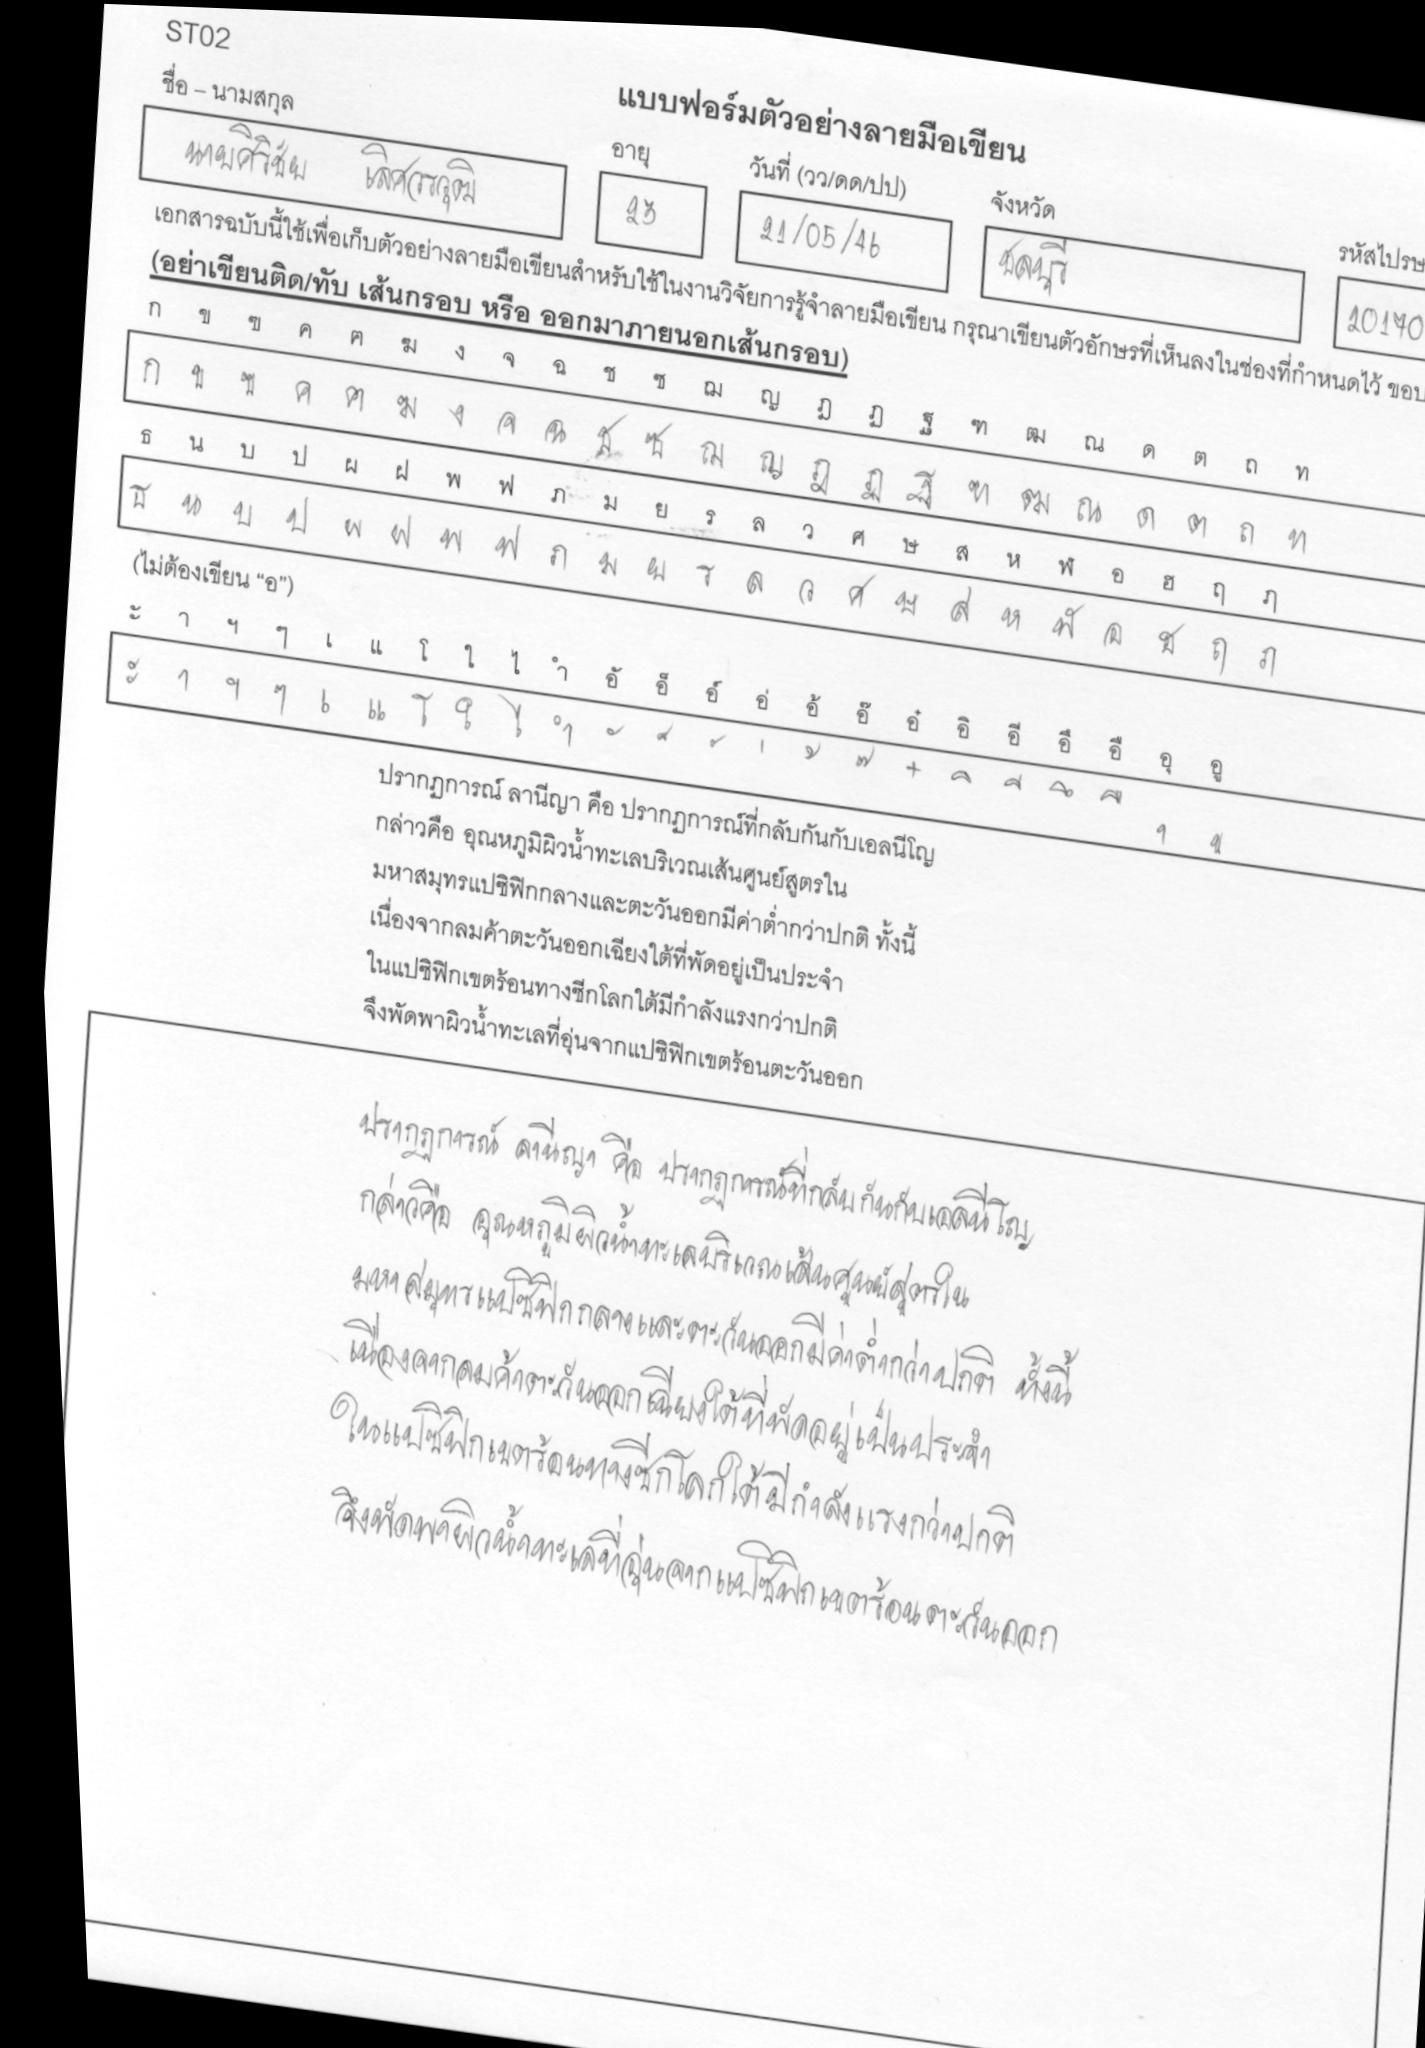 ST02
แบบฟอร์มตัวอย่างลายมือเขียน
ชื่อ – นามสกุล อายุ วันที่ (วว/ดด/ปป) จังหวัด
นายศิริชัย 23 21/05/46 ชลบุรี 20170
เอกสารฉบับนี้ใช้เพื่อเก็บตัวอย่างลายมือเขียนสำหรับใช้ในงานวิจัยการรู้จำลายมือเขียน กรุณาเขียนตัวอักษรที่เห็นลงในช่องที่กำหนดไว้
(อย่าเขียนติด/ทับ เส้นกรอบ หรือ ออกมาภายนอกเส้นกรอบ)
ก ข ฃ ค ฅ ฆ ง จ ฉ ช ซ ฌ ญ ฎ ฏ ฐ ฑ ฒ ณ ด ต ถ ท
ก ข ฃ ค ฅ ฆ ง จ ฉ ช ซ ฌ ญ ฎ ฏ ฐ ฑ ฒ ณ ด ต ถ ท
ธ น บ ป ผ ฝ พ ฟ ภ ม ย ร ล ว ศ ษ ส ห ฬ อ ฮ ฤ ฦ
ธ น บ ป ผ ฝ พ ฟ ภ ม ย ร ล ว ศ ษ ส ห ฬ อ ฮ ฤ ฦ
(ไม่ต้องเขียน “อ”)
ะ า ฯ ๆ เ แ โ ใ ไ ำ อั อ็ อ์ อ่ อ้ อ๊ อ๋ อิ อี อึ อื อุ อู
ะ า ฯ ๆ เ แ โ ใ ไ ำ ั ็ ์ ่ ้ ๊ ๋ ิ ี ึ ื ุ ู
ปรากฏการณ์ ลานีญา คือ ปรากฏการณ์ที่กลับกันกับเอลนีโญ
กล่าวคือ อุณหภูมิผิวน้ำทะเลบริเวณเส้นศูนย์สูตรใน
มหาสมุทรแปซิฟิกกลางและตะวันออกมีค่าต่ำกว่าปกติ ทั้งนี้
เนื่องจากลมค้าตะวันออกเฉียงใต้ที่พัดอยู่เป็นประจำ
ในแปซิฟิกเขตร้อนทางซีกโลกใต้มีกำลังแรงกว่าปกติ
จึงพัดพาผิวน้ำทะเลที่อุ่นจากแปซิฟิกเขตร้อนตะวันออก
ปรากฏการณ์ ลานีญา คือ ปรากฏการณ์ที่กลับกันกับเอลนีโญ
กล่าวคือ อุณหภูมิผิวน้ำทะเลบริเวณเส้นศูนย์สูตรใน
มหาสมุทรแปซิฟิกกลางและตะวันออกมีค่าต่ำกว่าปกติ ทั้งนี้
เนื่องจากลมค้าตะวันออกเฉียงใต้ที่พัดอยู่เป็นประจำ
ในแปซิฟิกเขตร้อนทางซีกโลกใต้มีกำลังแรงกว่าปกติ
จึงพัดพาผิวน้ำทะเลที่อุ่นจากแปซิฟิกเขตร้อนตะวันออก